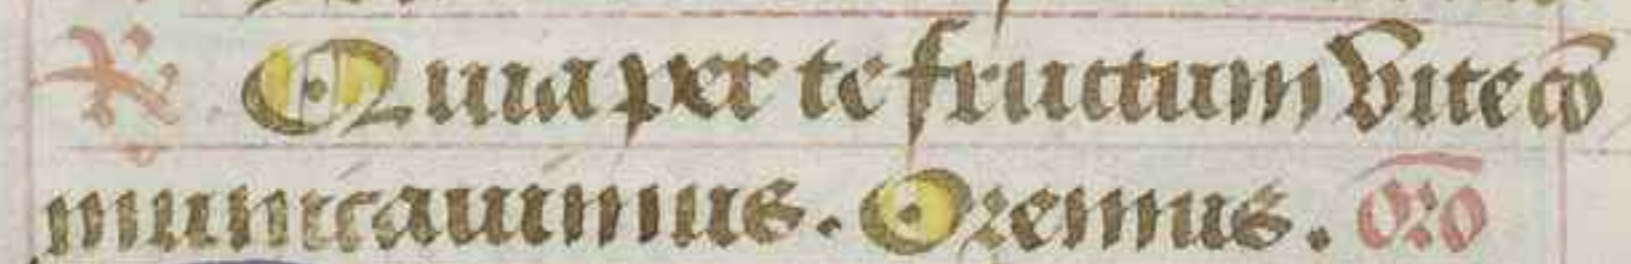 ℟ Quia per te fructum vite cō
municauimus. Oremus. Oro̅